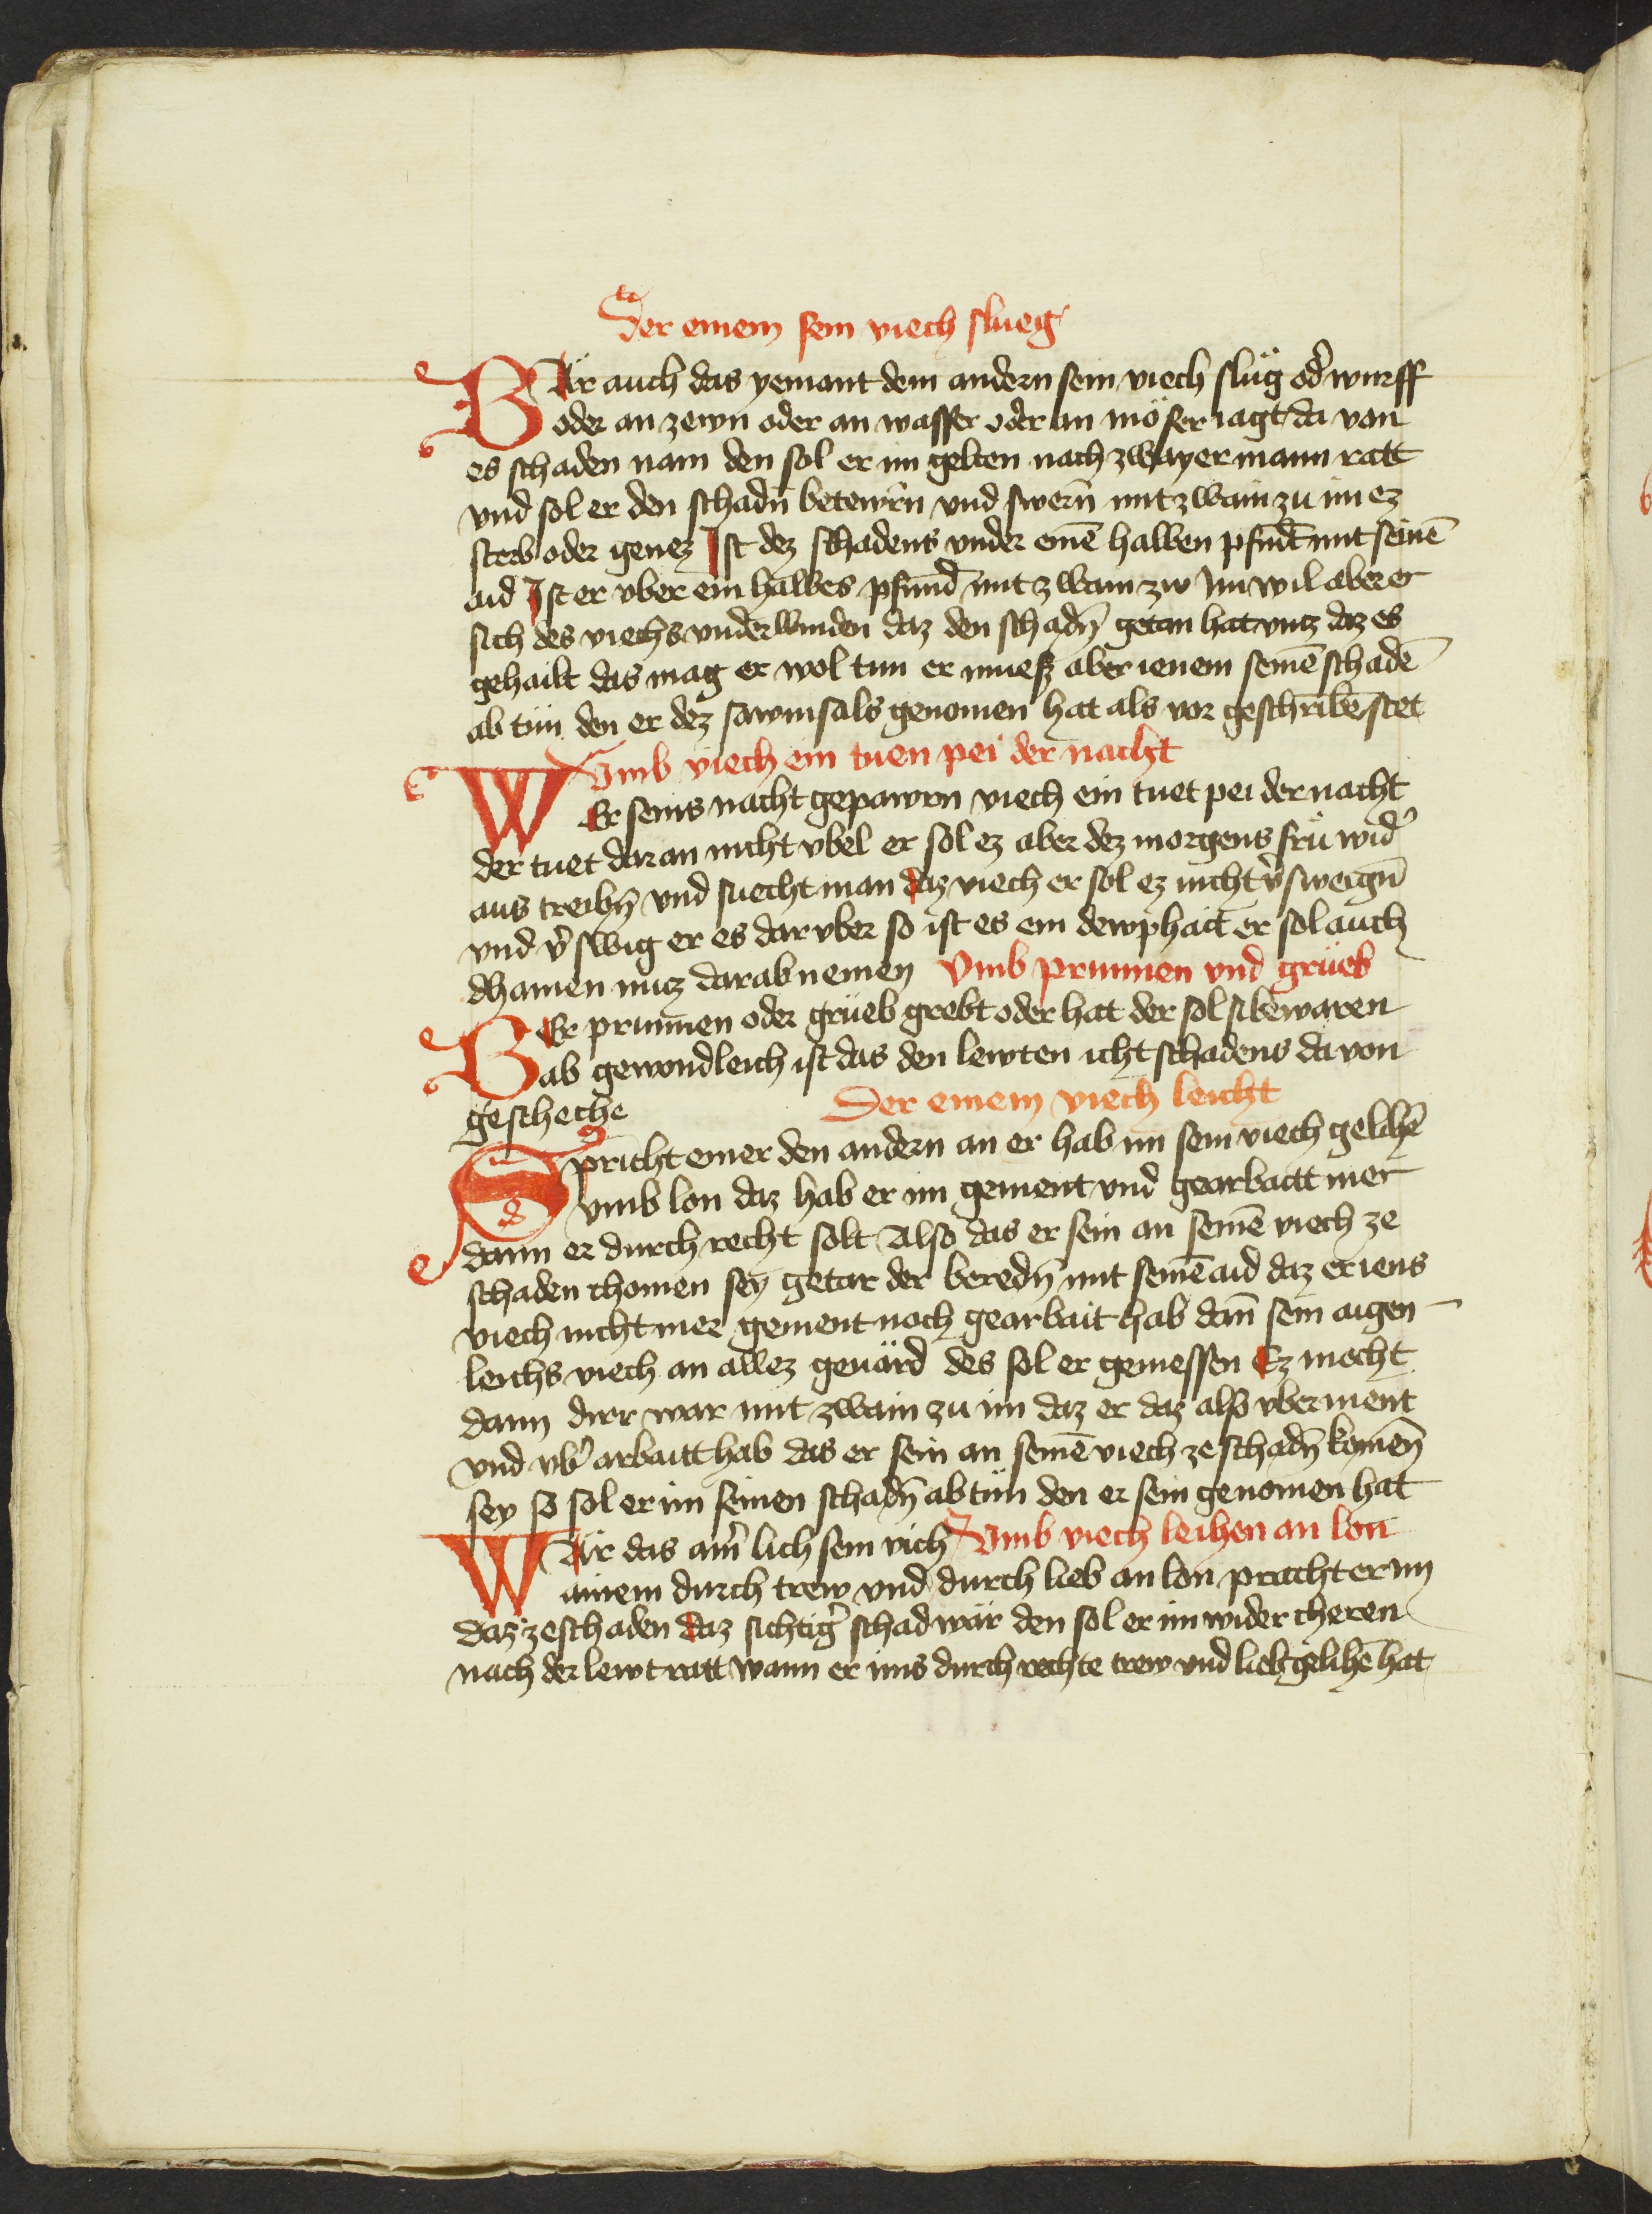 Der einem sein viech slueg
WÄr auch das yemant dem andern sein viech slüg od̉ wurff
oder an zewn oder an wasser oder an möser iagt da von
es schaden nam den sol er im gelten nach zwayer mann ratt
vnd sol er den schadn̄ betewrn̄ vnd swern̄ mit zwain zu im ez
sterb oder genez Ist dez schadens vnder einē halben pfūnt mit seinē
aid Ist er vber ein halbes pfund mit zwain zw im wil aber er
sich des viechs vnderwinden daz den schadn̄ getan hat vntz daz es
gehailt das mag er wol tun er muesz aber ienem seinē schadē
ab tün den er dez sawmsals genomen hat als vor geschribē stet
Vmb viech ein tuen pei der nacht
WEr seins nachtgepawrn viech ein tuet pei der nacht
der tuet dar an nicht vbel er sol ez aber dez morgens frü wid̉
aus treibn̄ vnd suecht man daz viech er sol ez nicht v̉sweign̄
vnd v̉swig er es dar vber so ist es ein dewphait er sol auch
dhainen nutz darab nemen Vmb prunnen vnd grüeb
WEr prunnen oder grüeb grebt oder hat der sol si bewaren
ab gewondleich ist das den lewten icht schadens da von
gescheche Der einem viech leicht
Spricht einer den andern an er hab im sein viech gelihē
vmb lon daz hab er im gement vnd gearbaitt mer
dann er durch recht solt Also das er sein an seinē viech ze
schaden chomen sey getar der beredn̄ mit seinē aid daz er iens
viech nicht mer gement noch gearbait hab dan̄ sein aigen
leichs viech an allez geuärd des sol er geniessen Ez mecht
dann dirr war mit zwain zu im daz er daz also vberment
vnd vb̉ arbaitt hab das er sein an seinē viech ze schadn̄ komen̄
sey so sol er im seinen schadn̄ ab tün den er sein genomen hat
WÄr das ain̉ lich sein vich Vmb viech leihen an lon
ainem durch trew vnd durch lieb an lon pracht er im
daz ze schaden daz sichtig̉ schad wär den sol er im wider cheren
nach der lewt ratt wann er ims durch rechte trew vnd lieb gelihē hat